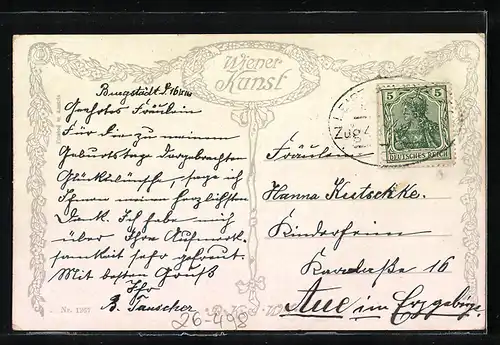 Wiener
Kunst
Burgstädt
Geehrtes Fräulein
Für die zu meinem
Geburtstage dargebrachten
Glückwünsche, sage ich
Ihnen meinen herzlichsten
Dank. Ich habe mich
über Ihre Aufmerk-
samkeit sehr gefreut.
Mit besten Gruß
Ihr
B. Tauscher
Nr. 1167
26-498
5 5
DEUTSCHES REICH
Zug
Fräulein
Hanna Kutschke.
Kinderheim
16
Aue im Erzgebirge.